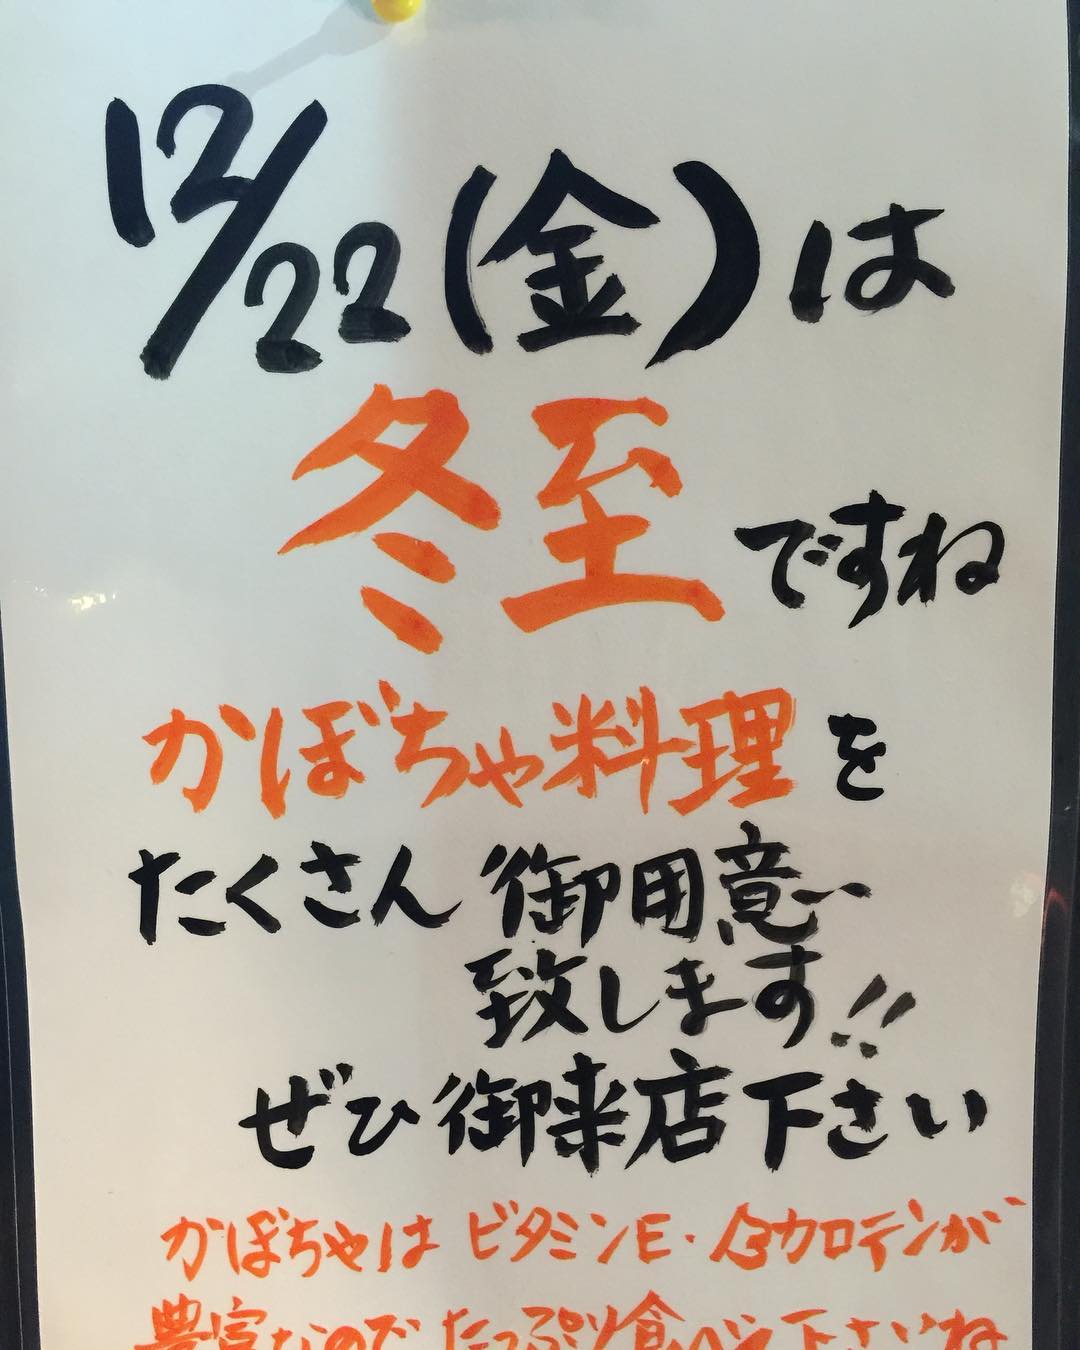 12/22(金)は
冬至ですね
かぼちゃ料理を
たくさん御用意
致します!!
ぜひ御来店下さい
かぼちゃはビタミンE・βカロテンが
豊富なのでたっぷり食べて下さいね